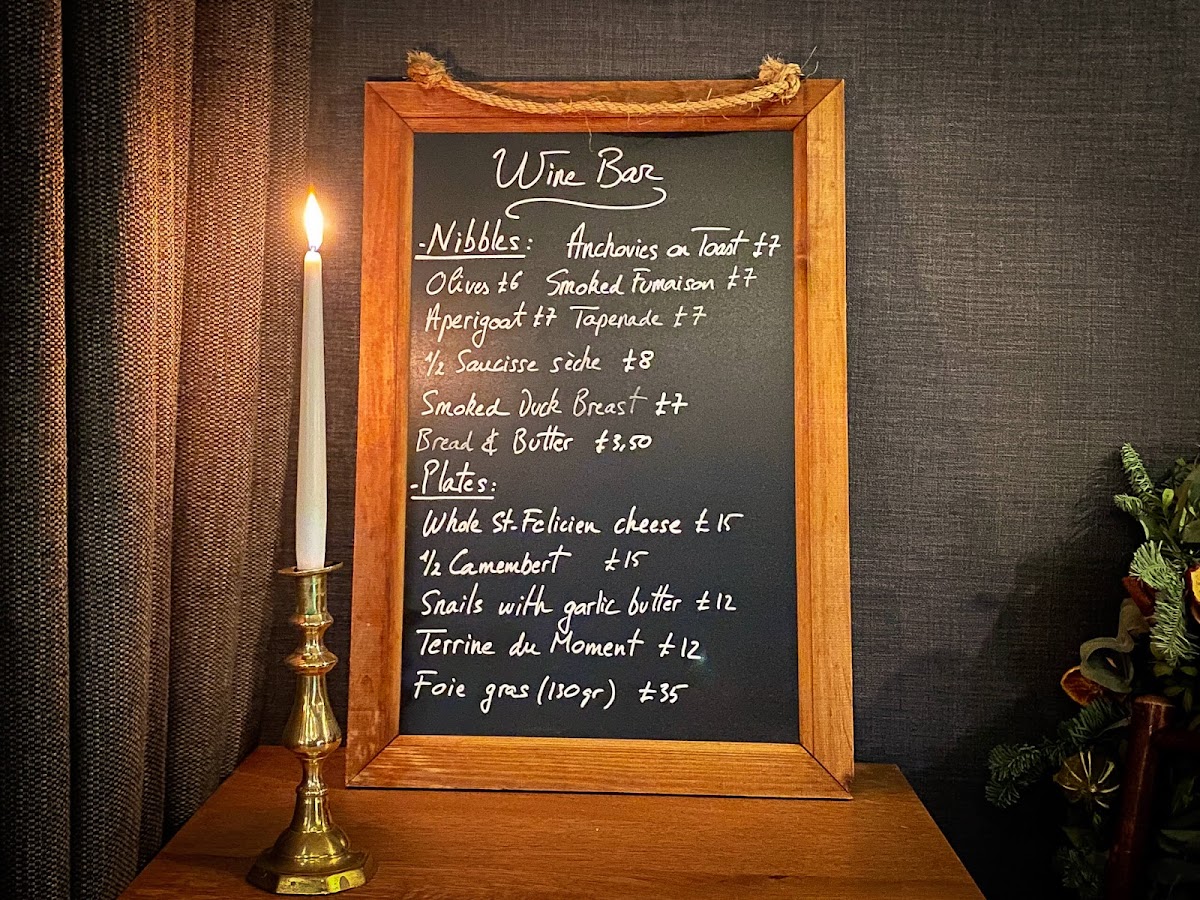 Wine Bar
-Nibbles: Anchovies on Toast £7
Olives £6 Smoked Fumaison £7
Aperigoat £7 Tapenade £7
1/2 Saucisse sèche £8
Smoked Duck Breast £7
Bread & Butter £3,50
-Plates:
Whole St-Felicien cheese £15
1/2 Camembert £15
Snails with garlic butter £12
Terrine du Moment £12
Foie gras (130gr) £35